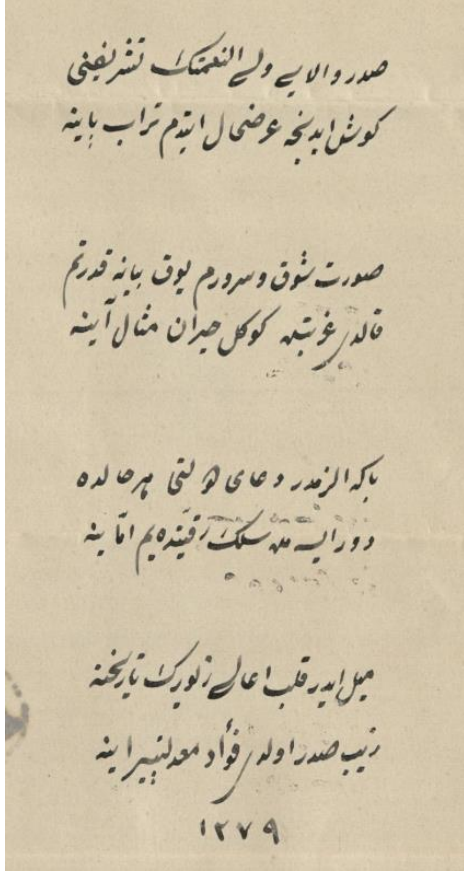 صدر والایه ولی النعمتك تشریفنی
كوش ایدنجه عرضحال ایتدم تراب پاینه
صورت شوق و سرورم یوق بیانه قدرتم
قالدی غربتده كوكل حیران مثال آینه
بكا الزمدر دعای دولتی هر حالده
دور ایسه م سلك رقیتده یم اما ینه
میل ایدر قلب اعالی زیورك تاریخنه
زیب صدر اولدی فؤاد معدلتپیرا ینه
١٢٧٩